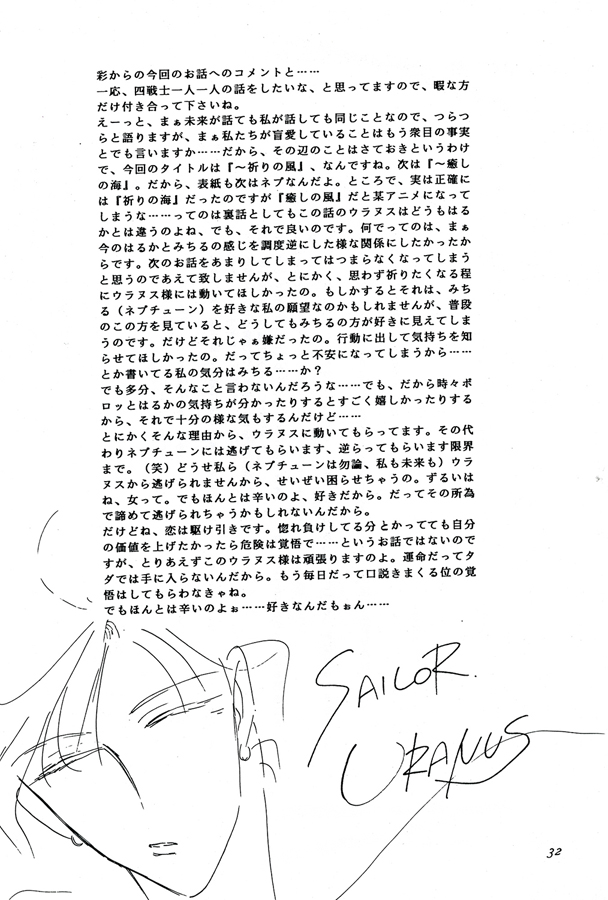 彩からの今回のお話へのコメントと……
一応、四戦士一人一人の話をしたいな、と思ってますので、暇な方
だけ付き合って下さいね。
えーっと、まぁ未来が話ても私が話しても同じことなので、つらつ
らと語りますが、まぁ私たちが盲愛していることはもう衆目の事実
とでも言いますか……だから、その辺のことはさておきというわけ
で、今回のタイトルは『〜祈りの風』、なんですね。次は『〜癒し
の海』。だから、表紙も次はネプなんだよ。ところで、実は正確に
は『祈りの海』だったのですが『癒しの風』だと某アニメになって
しまうな……ってのは裏話としてもこの話のウラヌスはどうもはる
かとは違うのよね、でも、それで良いのです。何でってのは、まぁ
今のはるかとみちるの感じを調度逆にした様な関係にしたかったか
らです。次のお話をあまりしてしまってはつまらなくなってしまう
と思うのであえて致しませんが、とにかく、思わず祈りたくなる程
にウラヌス様には動いてほしかったの。もしかするとそれは、みち
る(ネプチューン)を好きな私の願望なのかもしれませんが、普段
のこの方を見ていると、どうしてもみちるの方が好きに見えてしま
うのです。だけどそれじゃぁ嫌だったの。行動に出して気持ちを知
らせてほしかったの。だってちょっと不安になってしまうから……
とか書いてる私の気分はみちる……か?
でも多分、そんなこと言わないんだろうな……でも、だから時々ポ
ロッとはるかの気持ちが分かったりするとすごく嬉しかったりする
から、それで十分の様な気もするんだけど……
とにかくそんな理由から、ウラヌスに動いてもらってます。その代
わりネプチューンには逃げてもらいます、逆らってもらいます限界
まで。(笑)どうせ私ら(ネプチューンは勿論、私も未来も)ウラ
ヌスから逃げられませんから、せいぜい困らせちゃうの。ずるいは
ね、女って。でもほんとは辛いのよ、好きだから。だってその所為
で諦めて逃げられちゃうかもしれないんだから。
だけどね、恋は駆け引きです。惚れ負けしてる分とかってても自分
の価値を上げたかったら危険は覚悟で……というお話ではないので
すが、とりあえずこのウラヌス様は頑張りますのよ。運命だってタ
ダでは手に入らないんだから。もう毎日だって口説きまくる位の覚
悟はしてもらわなきゃね。
でもほんとは辛いのよぉ……好きなんだもぉん……
SAILOR.
URANUS
32